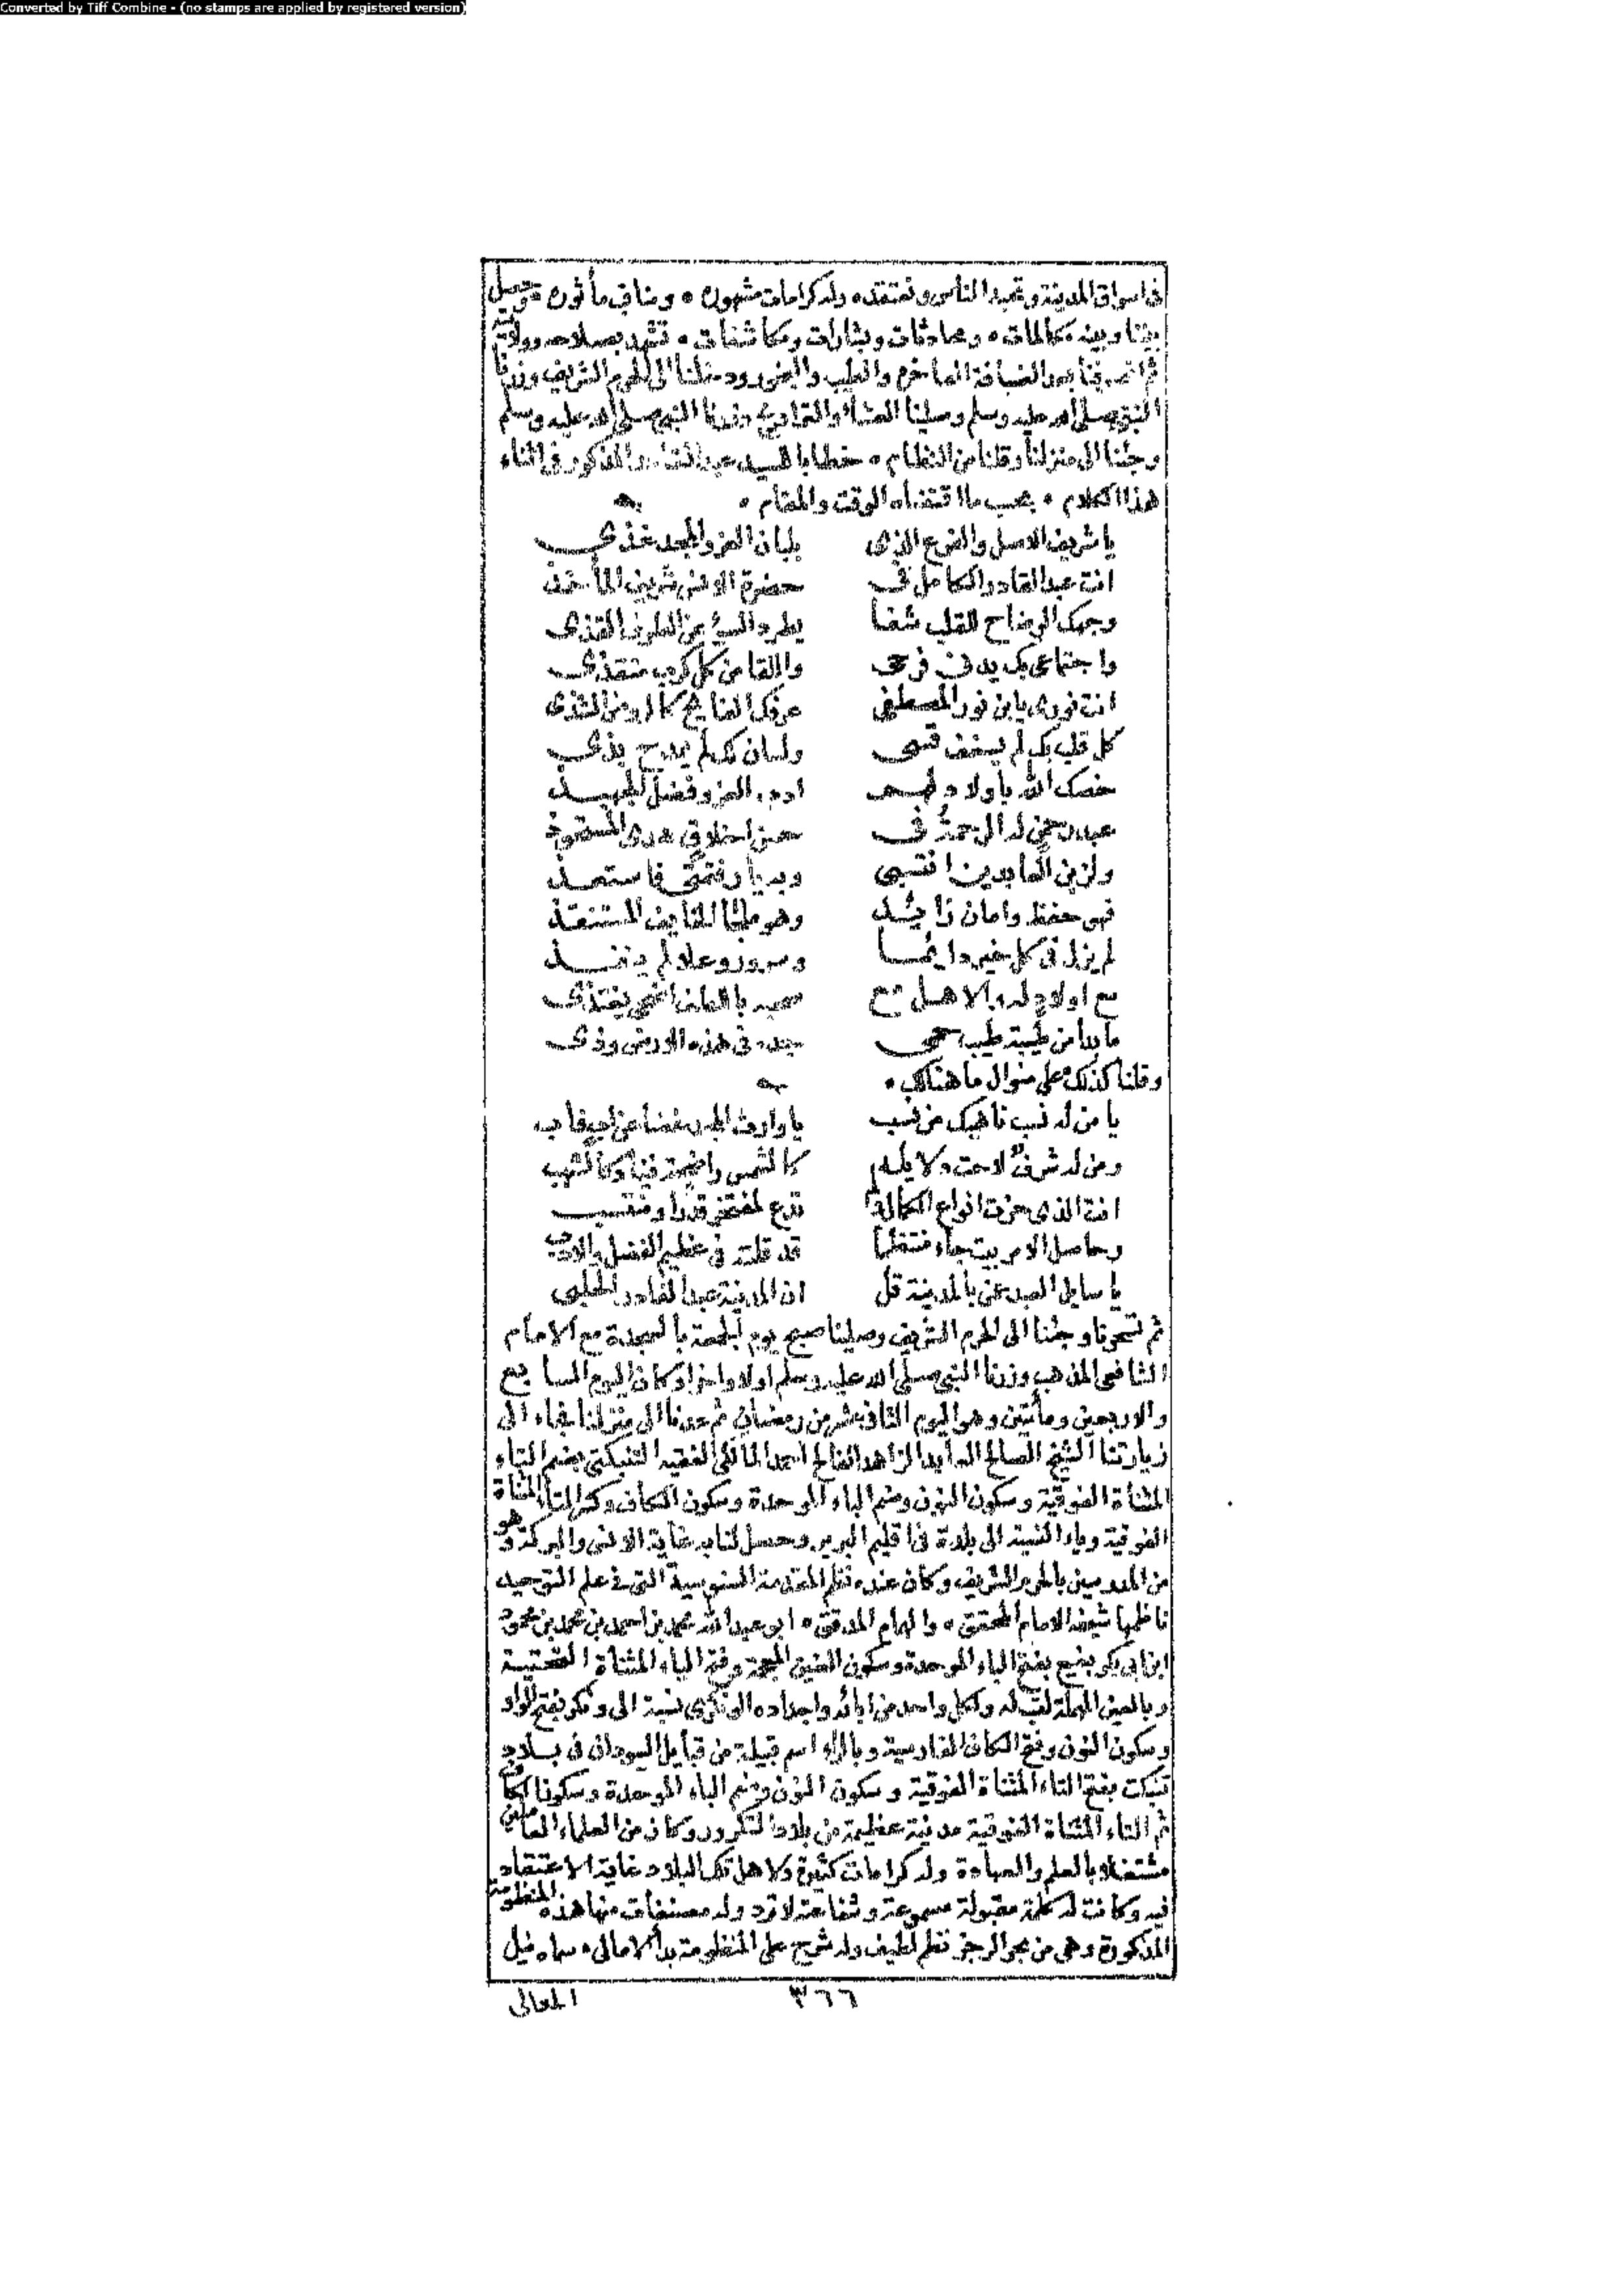 Converted by Tiff Combine - (no stamps are applied by registered version)
في اسواق المدينة وتحبه الناس وتعتقده وله كرامات مشهورة • ومناقب مأثورة • وحصل
بيننا وبينه مكالمات • ومحادثات وبشارات ومكاشفات • تشهد بصلاحه وولايته
ثم انصرفنا بعد الضيافة الفاخرة والطيب والبخور ودخلنا الى الحرم الشريف وزرنا
النبي صلى الله عليه وسلم وصلينا العشاء والتراويح وزرنا النبي صلى الله عليه وسلم
وجئنا الى منزلنا وقلنا من النظام • خطابا للسيد عبد القادر المذكور في اثناء
هذا الكلام • بحسب ما اقتضاه الوقت والمقام •
يا شريف الاصل والفرع الذي بلبان العز والمجد غذي
انت عبد القادر الكامل في حضرة الانس شريف المأخذ
وجهك الوضاح للقلب شفا يطرد السيء عن الطرف القذي
واجتماعي بك يدني فرحي واللقا من كل كرب منقذي
انت نوري يا بن نور المصطفى عرفك الفايح كالروض الشذي
كل قلب بك لم يشغف قسي ولسان لك لم يمدح بذي
خصك الله باولاد لهم ادب العز وفضل الجهبذ
عبد رحمن له الرحمة في حسن اخلاق هدى المستحوذ
ولزين العابدين انتسبي وبه يا رفعتي فاستعذ
فهو حفظ وامان زائد وهو ملجا للتايه المستنقذ
لم يزل في كل خير دايما وسرور وعلا لم ينفذ
مع اولاد له والاهل مع صحبه باللطف اضحى يغتذي
ما بدا من طيبة طيب حمى جيده في هذه الارض وذي
وقلنا كذلك على منوال ما هنالك •
يا من له نسب ناهيك من نسب يا وارث المجد غضا عن اب فاب
ومن له شرف لاحت دلايله كالشمس واضحة فينا وكالشهب
انت الذي حزت انواع الكمال فلم تدع لمفتخر قدرا ومنتسب
وحاصل الامر بيت جاء منتظما قد قلته في عظيم الفضل والادب
يا سايل العبد عني بالمدينة قل ان المدينة عبد القادر الحلبي
ثم تسحرنا وجئنا الى الحرم الشريف وصلينا صبح يوم الجمعة بالسجدة مع الامام
الشافعي المذهب وزرنا النبي صلى الله عليه وسلم اولا واخرا وكان اليوم السابع
والاربعين ومأتين وهو اليوم الثاني عشر من رمضان ثم عدنا الى منزلنا فجاء الى
زيارتنا الشيخ الصالح العابد الزاهد الفالح احمد المالكي الفقيه التنبكتي بضم التاء
المثناة الفوقية وسكون النون وضم الباء الموحدة وسكون الكاف وكسر التاء المثناة
الفوقية وياء النسبة الى بلدة في اقليم البربر وحصل لنا به غاية الانس والبركة وهو
من المدرسين بالحرم الشريف وكان عنده نظم المقدمة السنوسية التي في علم التوحيد
ناظمها شيخه الامام المحقق • والهمام المدقق • ابو عبد الله محمد بن احمد بن محمد بن محمود
ابن ابي بكر بغيع بفتح الباء الموحدة وسكون الغين المعجمة وفتح الياء المثناة التحتية
وبالعين المهملة لقب له ولكل واحد من ابائه واجداده الونكري نسبة الى ونكر بفتح الواو
وسكون النون وفتح الكاف الفارسية وبالراء اسم قبيلة من قبايل السودان في بلاد
تنبكت بفتح التاء المثناة الفوقية وسكون النون وضم الباء الموحدة وسكون الكاف
ثم التاء المثناة الفوقية مدينة عظيمة من بلاد التكرور وكان من العلماء العاملين
مشتغلا بالعلم والعبادة وله كرامات كثيرة ولاهل تلك البلاد غاية الاعتقاد
فيه وكانت له كلمة مقبولة مسموعة وشفاعته لا ترد وله مصنفات منها هذه المنظومة
المذكورة وهي من بحر الرجز نظم لطيف وله شرح على المنظومة بدأ الامالي • سماه نيل
المعالي
٣٦٦